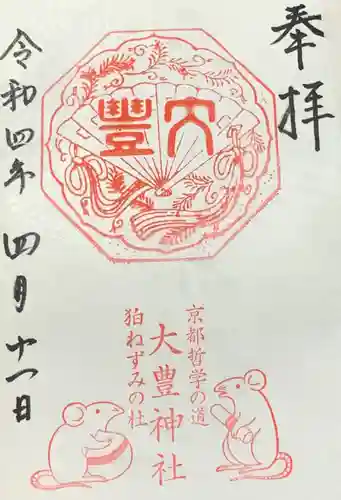 奉拝
大豊
令和四年 四月十一日
京都哲学の道
大豊神社
狛ねずみの社